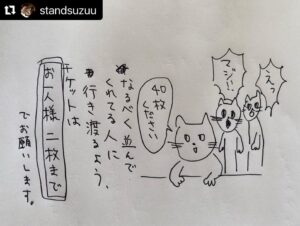 standsuzuu
えっ
マジ!!
40枚
ください
なるべく並んで
くれてる人に
行き渡るよう、
チケットは
お一人様 二枚まで
でお願いします。